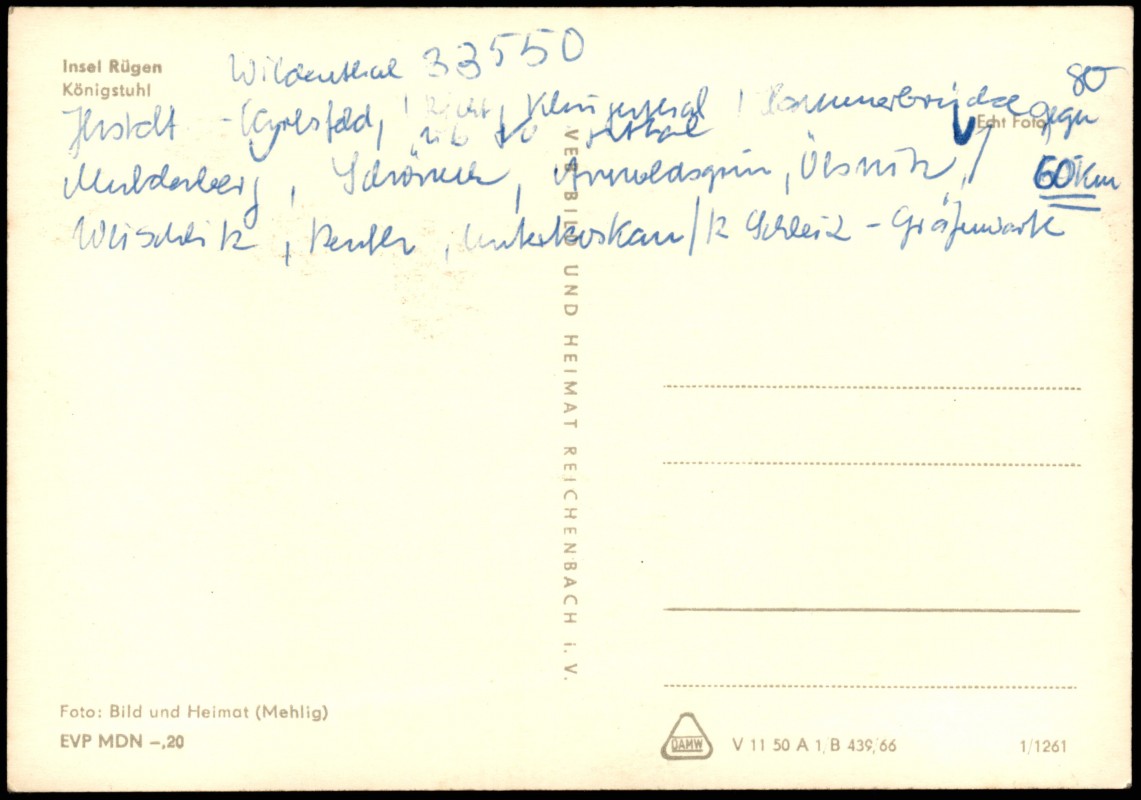 Insel Rügen
Königstuhl
Wildenthal 33550
Carlsfeld, Klingenthal, Hammerbrücke gegen 80
Echt Foto
Muldenberg, Schöneck, Arnoldsgrün, Ölsnitz, / 60 Km
Weischlitz, Reuth, Unterkoskau / Schleiz - Gräfenwarth
VEB BILD UND HEIMAT REICHENBACH i. V.
Foto: Bild und Heimat (Mehlig)
EVP MDN –,20
DAMW
V 11 50 A 1, B 439/66
1/1261